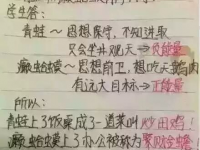 学生答:
青蛙~思想保守,不知进取
只会坐井观天⇒负能量
癞蛤蟆~思想前卫,想吃天鹅肉
有远大目标⇒正能量
所以:
青蛙上了饭桌成了一道菜叫炒田鸡!
癞蛤蟆上了办公被称为